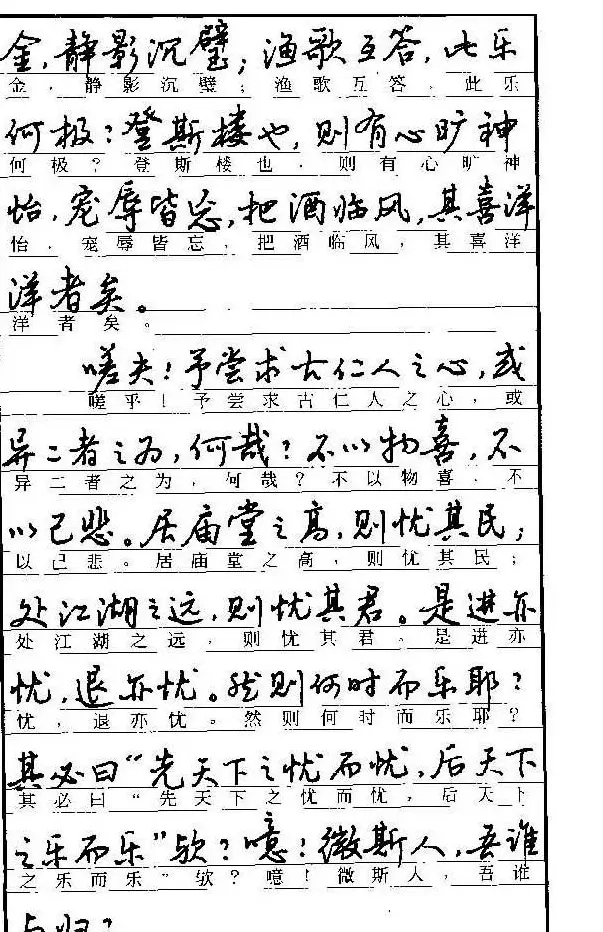 金,静影沉璧;渔歌互答,此乐
金,静影沉璧;渔歌互答,此乐
何极?登斯楼也,则有心旷神
何极?登斯楼也,则有心旷神
怡,宠辱皆忘,把酒临风,其喜洋
怡,宠辱皆忘,把酒临风,其喜洋
洋者矣。
洋者矣。
嗟夫!予尝求古仁人之心,或
嗟乎!予尝求古仁人之心,或
异二者之为,何哉?不以物喜,不
异二者之为,何哉?不以物喜,不
以己悲。居庙堂之高,则忧其民;
以己悲。居庙堂之高,则忧其民;
处江湖之远,则忧其君。是进亦
处江湖之远,则忧其君。是进亦
忧,退亦忧。然则何时而乐耶?
忧,退亦忧。然则何时而乐耶?
其必曰“先天下之忧而忧,后天下
其必曰“先天下之忧而忧,后天下
之乐而乐”欤?噫!微斯人,吾谁
之乐而乐”欤?噫!微斯人,吾谁
与归?